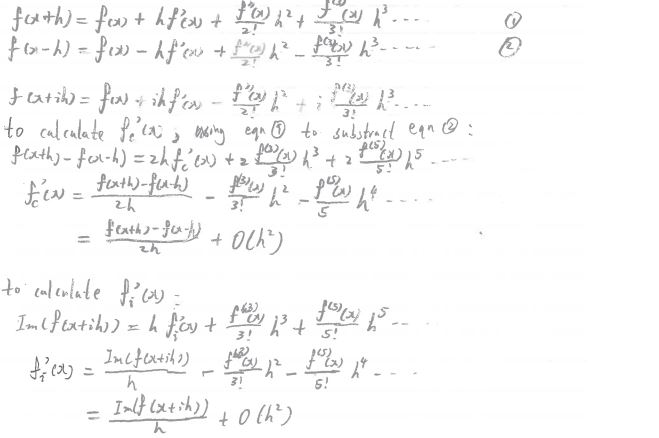 f(x+h) = f(x) + hf'(x) + f''(x)/2! h² + f⁽³⁾(x)/3! h³ ..... ①
f(x-h) = f(x) - hf'(x) + f''(x)/2! h² - f⁽³⁾(x)/3! h³ ..... ②
f(x+ih) = f(x) + ihf'(x) - f''(x)/2! h² + i f⁽³⁾(x)/3! h³ .....
to calculate fc'(x), using eqn ① to substract eqn ② :
f(x+h) - f(x-h) = 2h fc'(x) + 2 f⁽³⁾(x)/3! h³ + 2 f⁽⁵⁾(x)/5! h⁵ ....
fc'(x) = f(x+h) - f(x-h)/2h - f⁽³⁾(x)/3! h² - f⁽⁵⁾(x)/5 h⁴ ....
= f(x+h) - f(x-h)/2h + O(h²)
to calculate fi'(x) :
Im(f(x+ih)) = h fi'(x) + f⁽³⁾(x)/3! h³ + f⁽⁵⁾(x)/5! h⁵ ....
fi'(x) = Im(f(x+ih))/h - f⁽³⁾(x)/3! h² - f⁽⁵⁾(x)/5! h⁴ ....
= Im(f(x+ih))/h + O(h²)